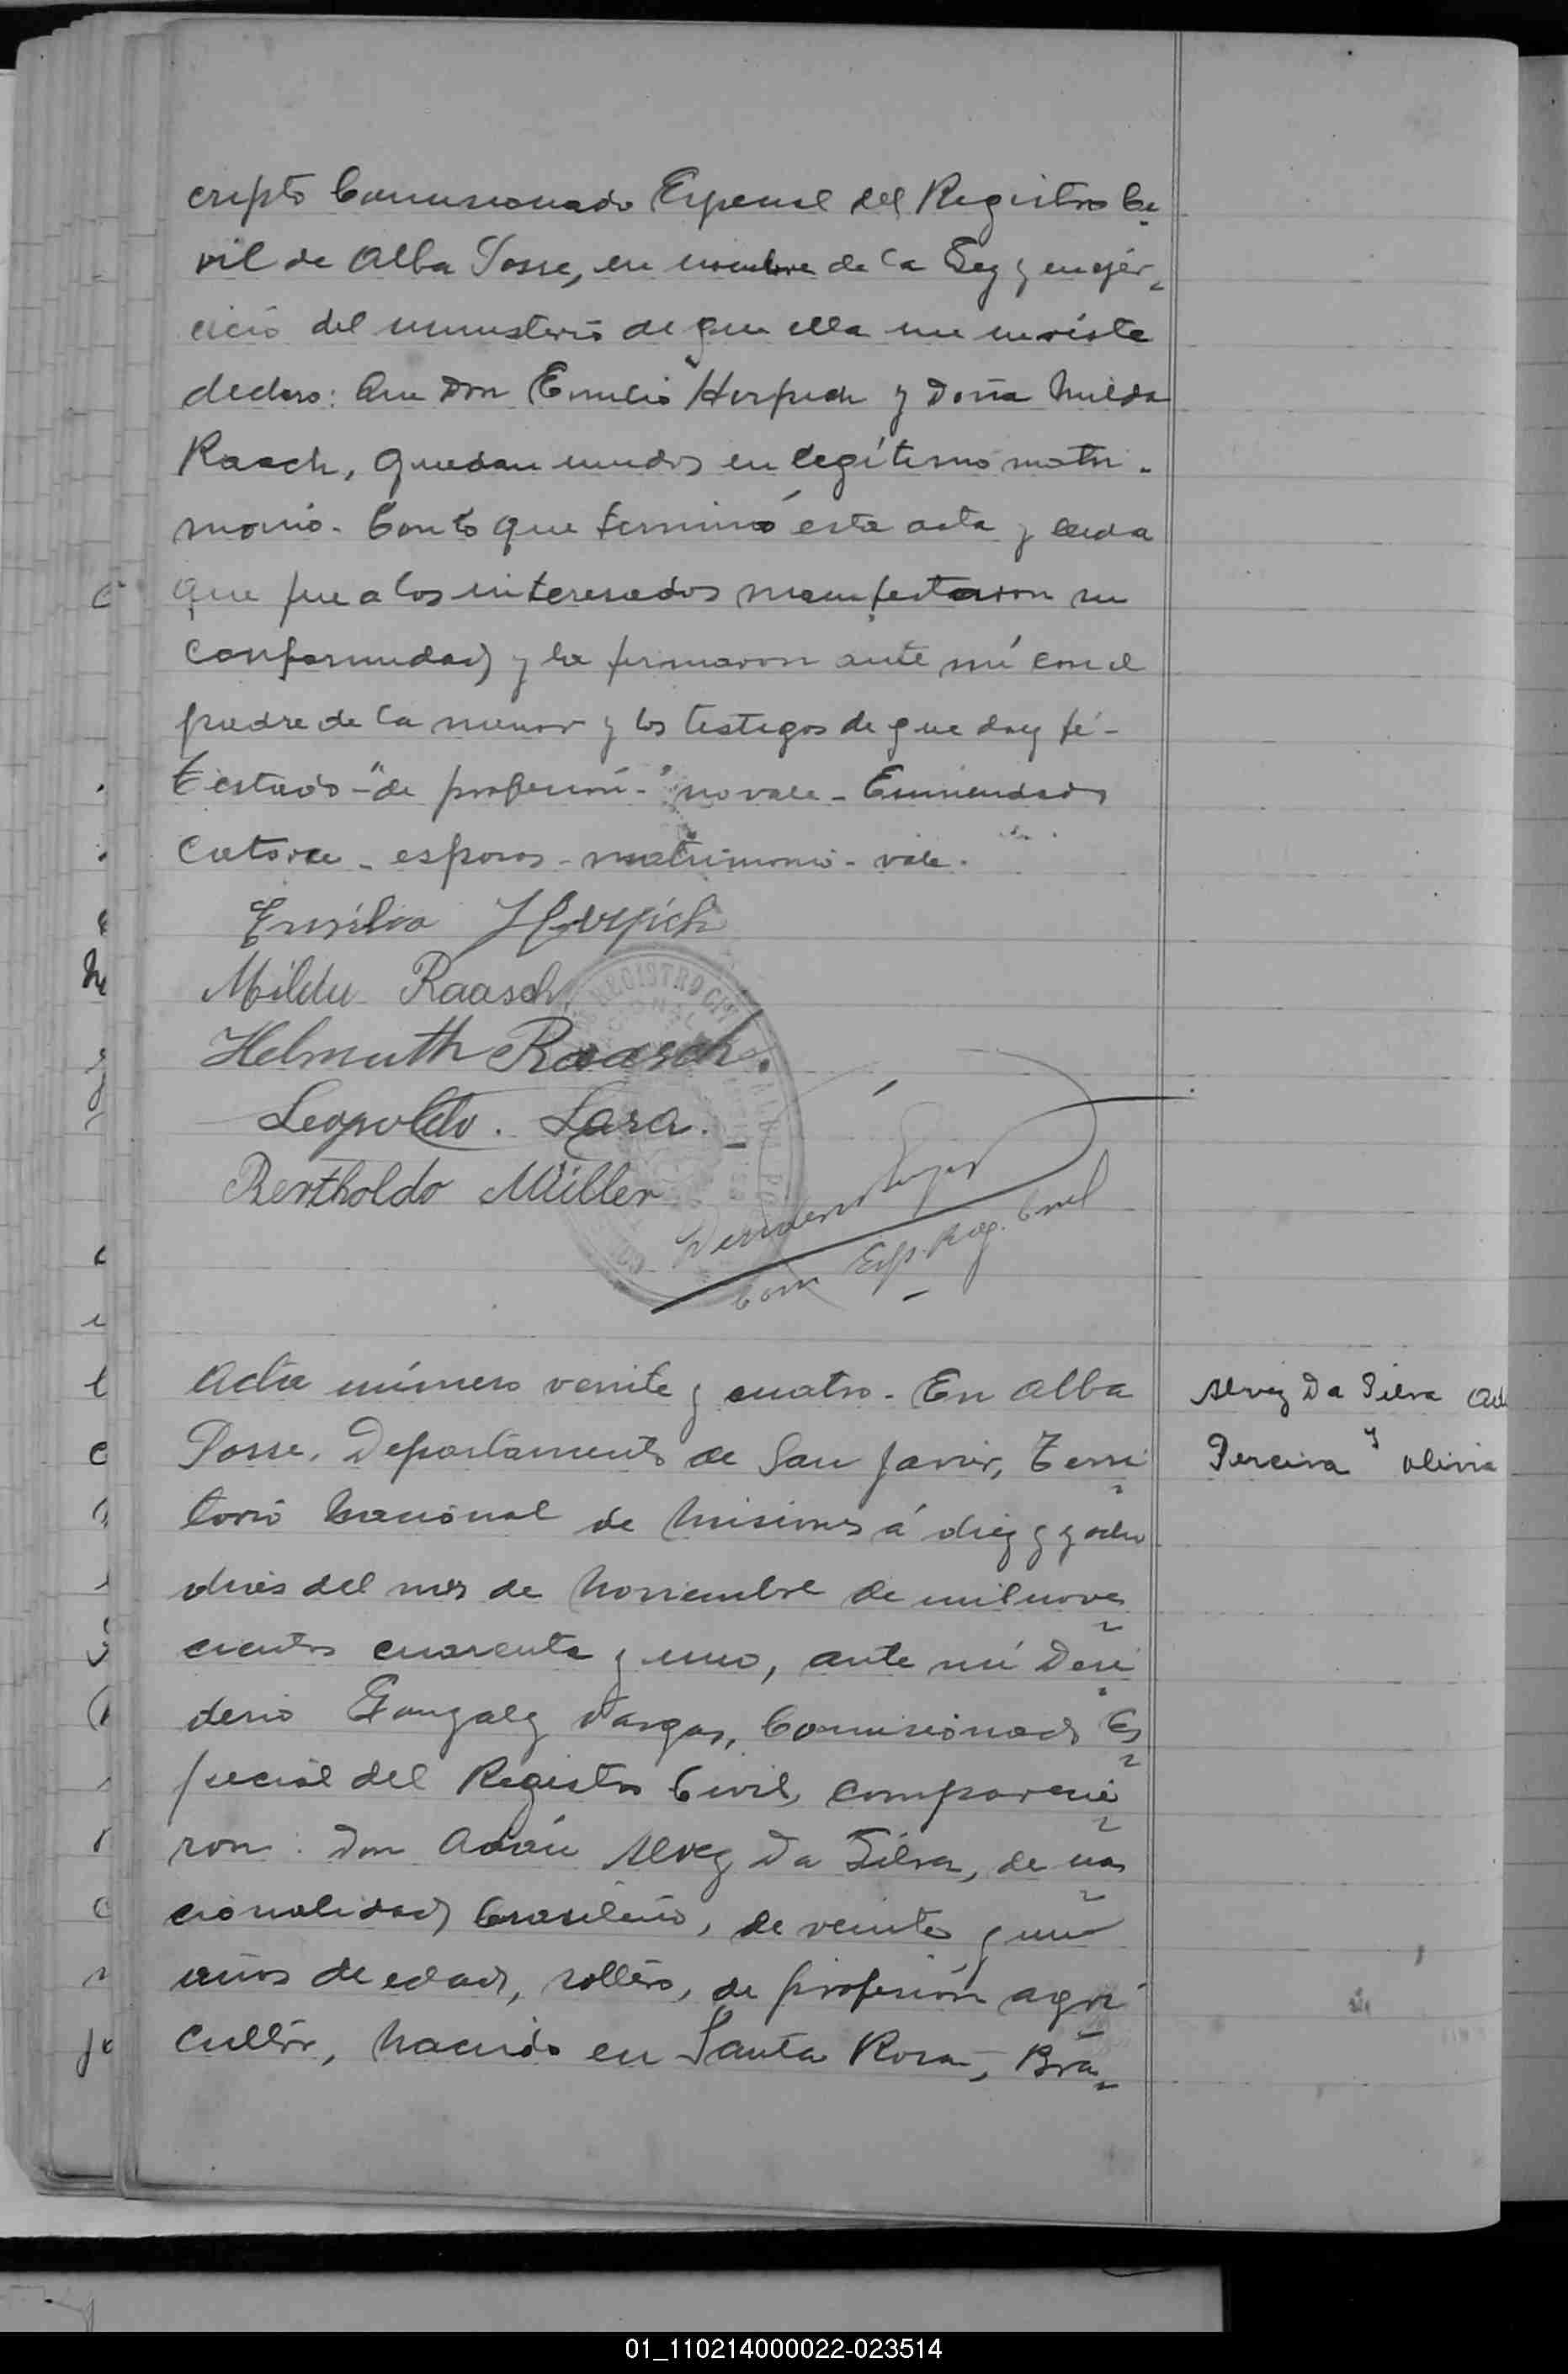 cripto Comisionado Especial del Registro Ci
vil de Alba Posse, en nombre de la Ley y en ejer
cicio del ministerio de que ella me inviste
declaro: Que Don Emilio Herpich y Doña Milda
Raasch, quedan unidos en legítimo matri-
monio. Con lo que terminó esta acta y leida
que fue a los interesados manifestaron su
conformidad y la firmaron ante mí con el
padre de la menor y los testigos de que doy fé-
Testado-"de profesión-" no vale- Enmendado
catorce - esposos - matrimonio - vale.
Emilio Herpich
Milda Raasch
Helmuth Raasch.
Leopoldo. Lara.
Bertholdo Müller
REGISTRO CIVIL
Com Esp. Reg. Civil
Acta número veinte y cuatro. En Alba
Posse, Departamento de San Javier, Terri
torio Nacional de Misiones á diez y ocho
dias del mes de Noviembre de mil nove
cientos cuarenta y uno, ante mí Desi
derio Gonzalez Vargas, Comisionado Es
pecial del Registro Civil, comparecie
ron: Don Adán Alvez Da Silva, de na
cionalidad brasileño, de veinte y un
años de edad, soltero, de profesión agri
cultor, nacido en Santa Rosa, Bra
Alvez Da Silva Ad
y
Pereira Olivia
01_110214000022-023514